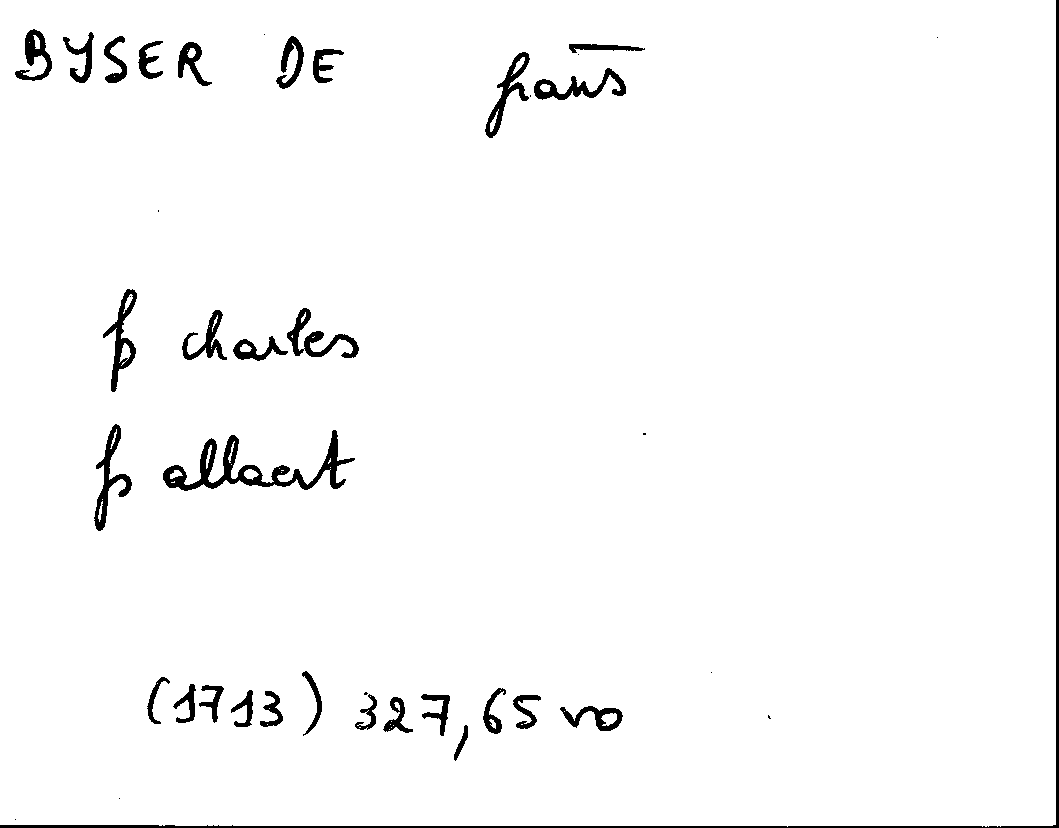 BYSER DE frans
fs charles
fs allaert
(1713) 327,65 vo